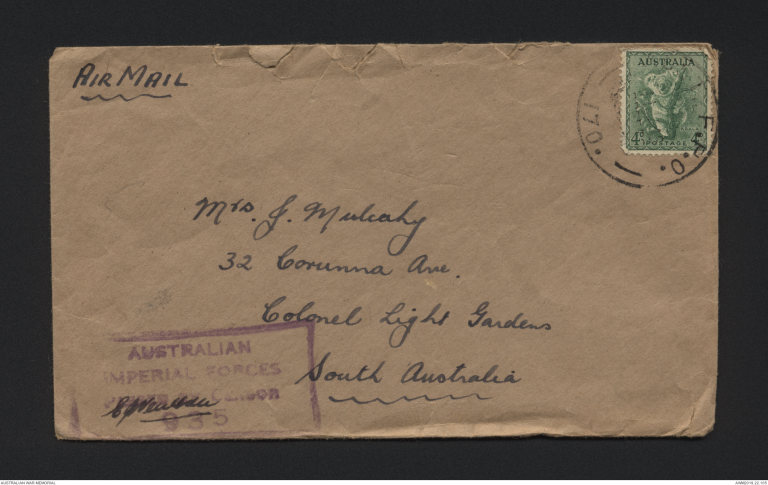 AIR MAIL
AUSTRALIA
4D POSTAGE
F.P.O.
170
Mrs. J. Mulcahy
32 Corunna Ave.
Colonel Light Gardens
South Australia
AUSTRALIAN
IMPERIAL FORCES
CENSOR
935
AUSTRALIAN WAR MEMORIAL